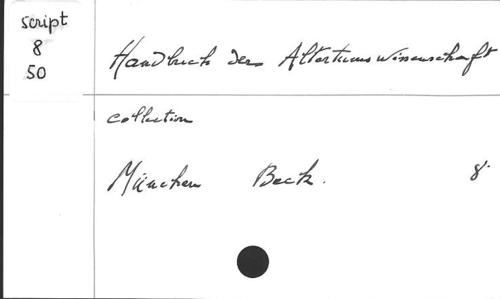 script
8
50
Handbuch der Altertumswissenschaft
collection
München Beck. 8°